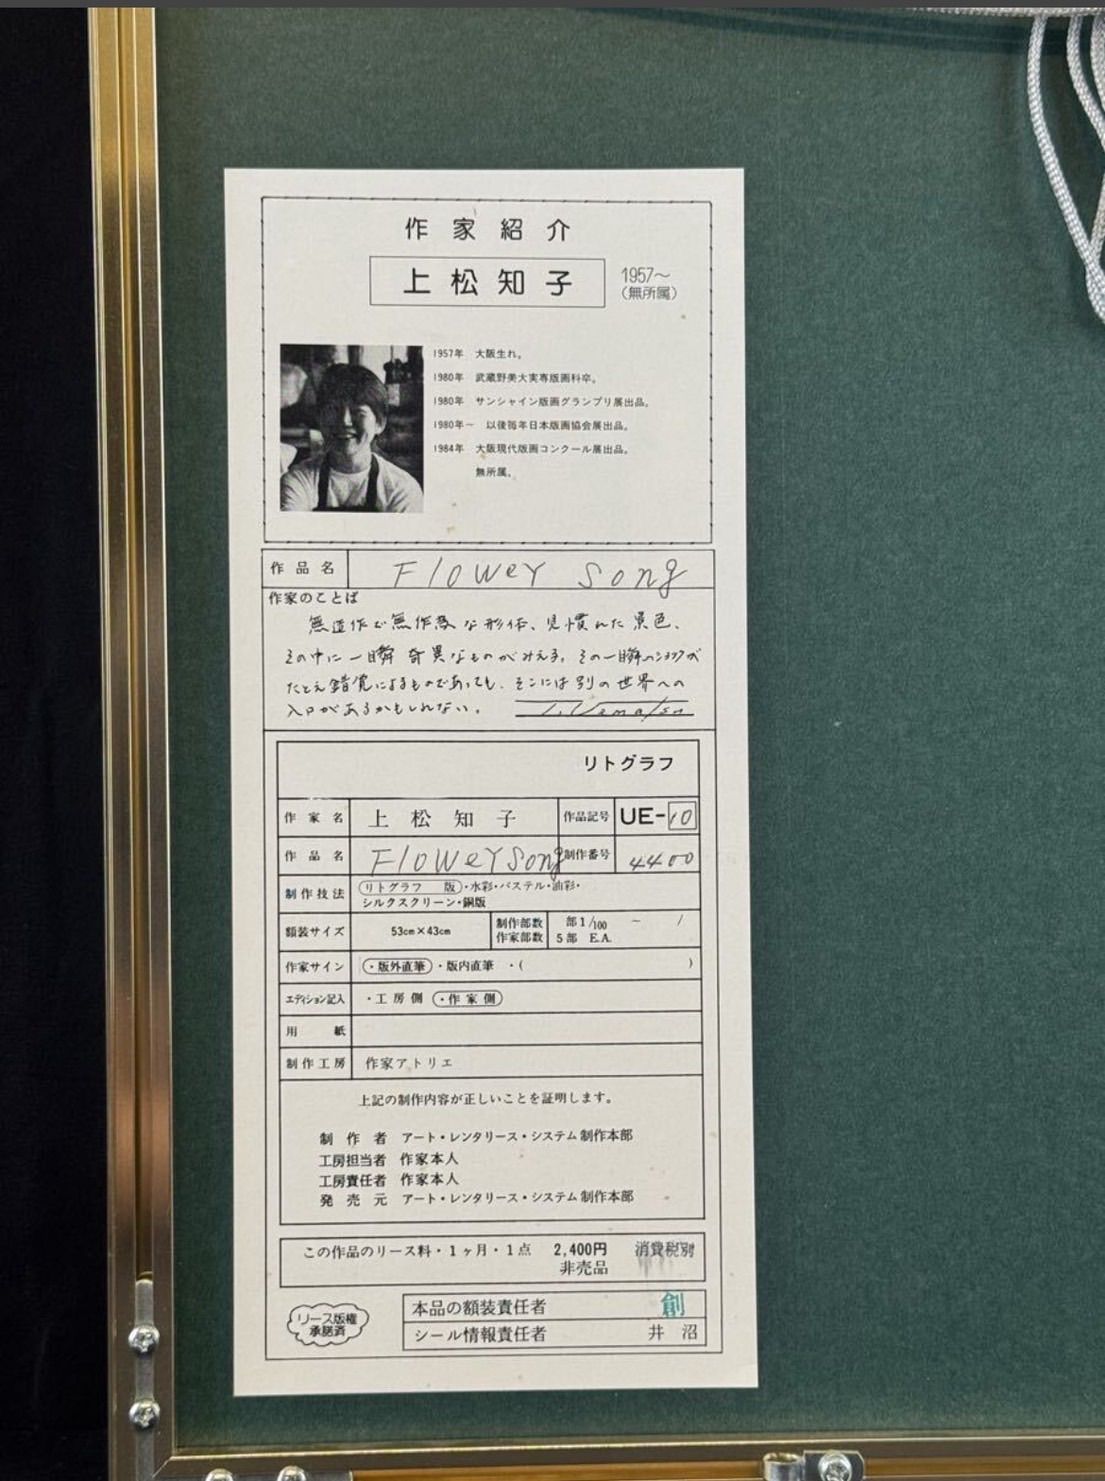 作家紹介
上松知子
1957〜
(無所属)
1957年 大阪生れ。
1980年 武蔵野美大実専版画科卒。
1980年 サンシャイン版画グランプリ展出品。
1980年− 以後毎年日本版画協会展出品。
1984年 大阪現代版画コンクール展出品。
無所属。
作品名 Flower Song
作家のことば
無造作で無作為な形体、見慣れた景色、
その中に一瞬奇異なものがみえる。その一瞬のショックが
たとえ錯覚によるものであっても、そこには別の世界への
入口があるかもしれない。 T. Uematsu
リトグラフ
作家名 上松知子 作品記号 UE-10
作品名 Flower Song 制作番号 4400
制作技法 リトグラフ 版・水彩・パステル・油彩・
シルクスクリーン・銅版
額装サイズ 53cm×43cm 制作部数 部1/100 − /
作家部数 5部 E.A.
作家サイン ・版外直筆・版内直筆 ・( )
エディション記入 ・工房側 ・作家側
用紙
制作工房 作家アトリエ
上記の制作内容が正しいことを証明します。
制作者 アート・レンタリース・システム制作本部
工房担当者 作家本人
工房責任者 作家本人
発売元 アート・レンタリース・システム制作本部
この作品のリース料・1ヶ月・1点 2,400円 消費税別
非売品
リース版権
承諾済
本品の額装責任者 創
シール情報責任者 井沼